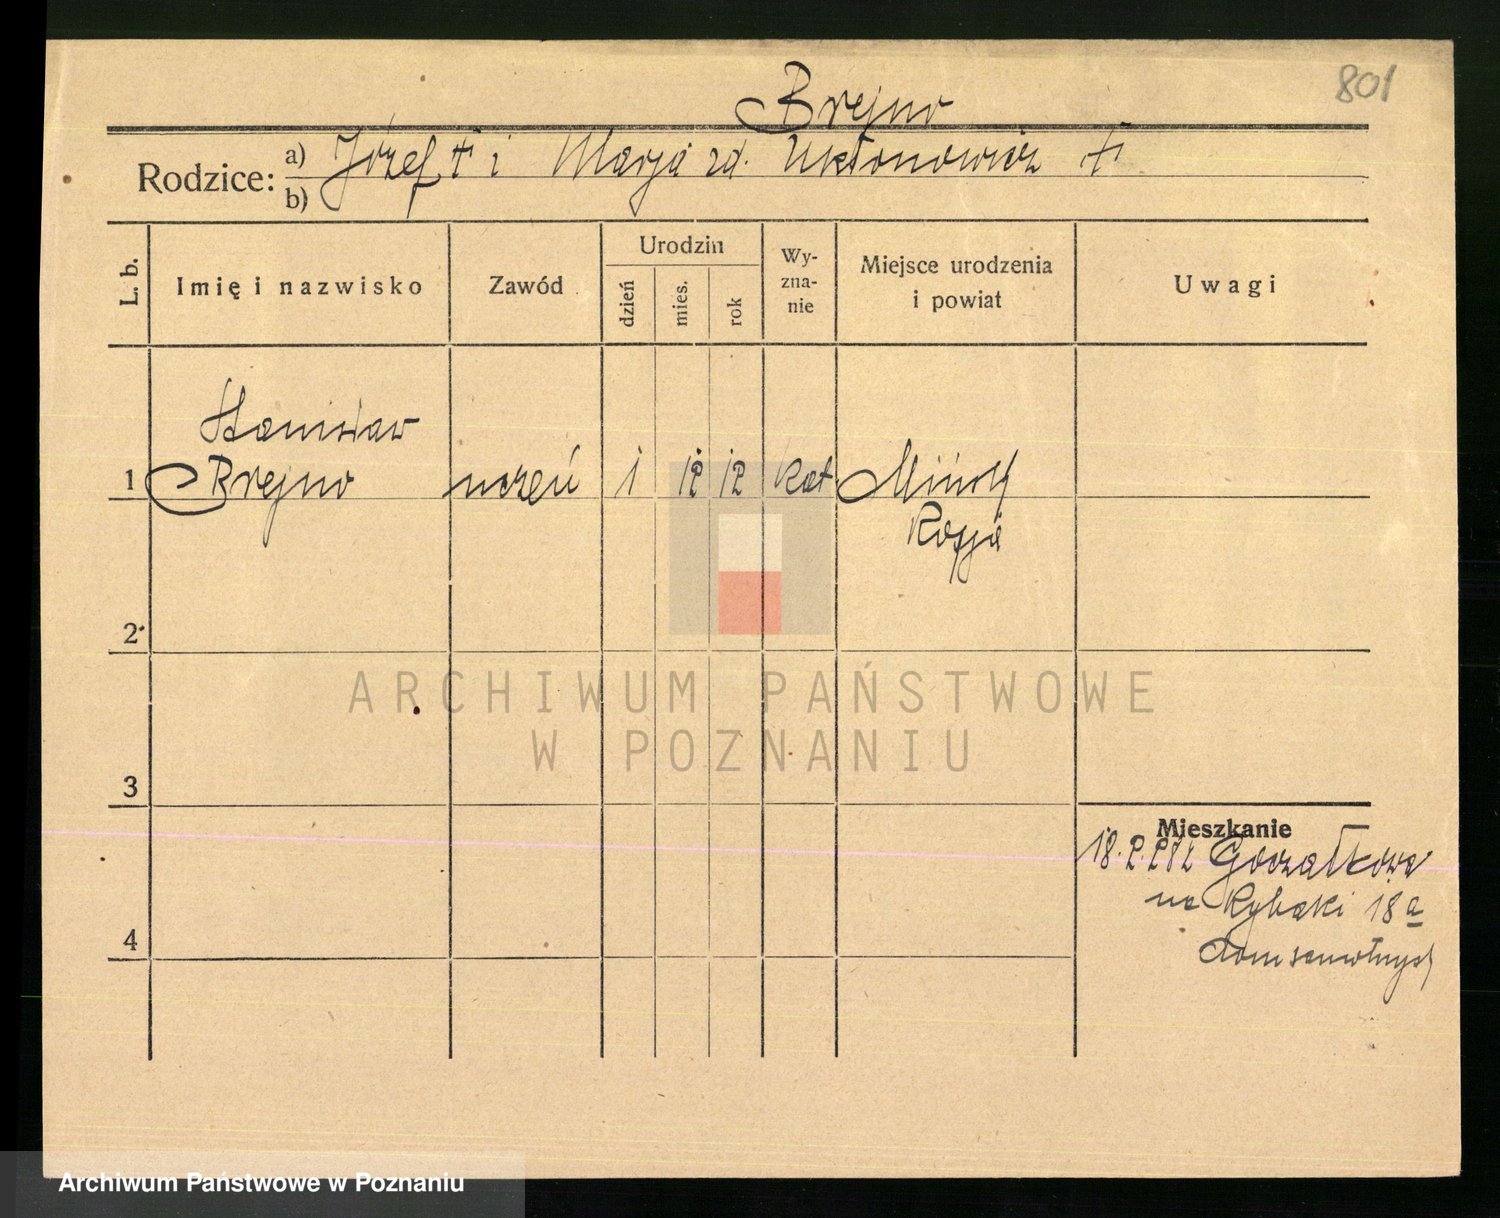 801
Brejno
Rodzice: a) Józef † i Marja zd. Uktonowicz †
b)
L. b.
Imię i nazwisko
Zawód
Urodzin
dzień
mies.
rok
Wy-
zna-
nie
Miejsce urodzenia
i powiat
Uwagi
Stanisław
1 Brejno uczeń 1 12 12 kat Mińsk
Rosja
2
3
4
Mieszkanie
18.2.
na Rybaki 18a
dom
ARCHIWUM PAŃSTWOWE
W POZNANIU
Archiwum Państwowe w Poznaniu